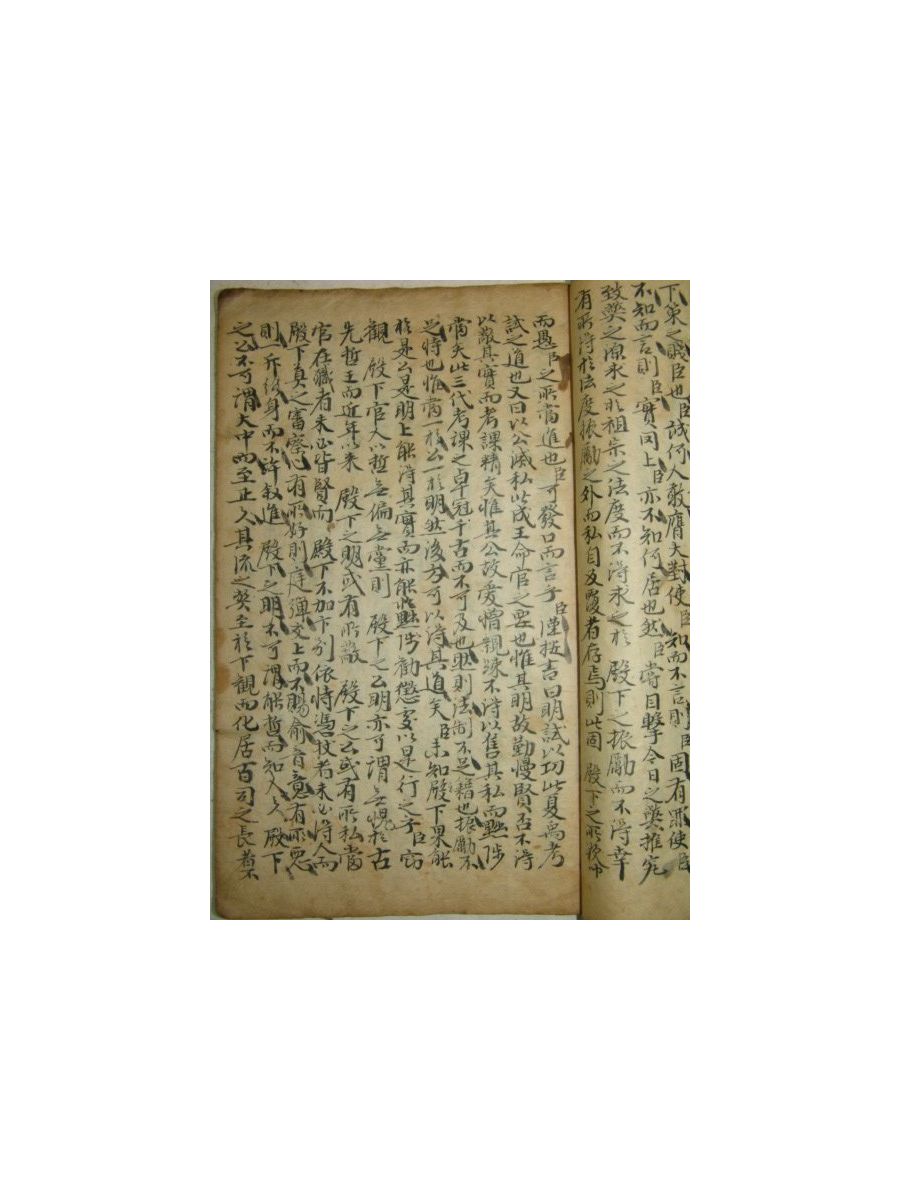 下策䎽臣也臣誠何人敢膺大對使臣知而不言則臣固有罪使臣
不知而言則臣實罔上臣亦不知何居也然臣嘗目擊今日之弊推究
致弊之源求之於祖宗之法度而不得求之於 殿下之振勵而不得幸
有所得於法度振勵之外而私自及覆者存焉則此固 殿下之所
而愚臣之所當進也臣可發口而言乎臣謹按吉曰明試以功此夏禹考
試之道也又曰以公滅私此成王命官之要也惟其明故勤慢賢否不得
以蔽其實而考課精矣惟其公故愛憎親踈不得以售其私而黜陟
當矣此三代考課之卓冠千古而不可及也然則法制不足藉也振勵不
足恃也惟當一於公一於明然後方可以得其道矣臣未知殿下果能
於是公是明上能得其實而亦能黜陟勸懲受以是行之乎臣窃
觀 殿下官人以哲無偏無黨則 殿下之公明亦可謂無愧於古
先哲王而近年以來 殿下之明或有所蔽 殿下之公或有所私當
官在職者未必皆賢而 殿下不加下別依恃憑杖者未必得人而
殿下莫之審察心有所好則庭彈交上而不賜俞音意有所惡
則一斥終身而不許敍進 殿下之明不可謂能哲而知人矣 殿下
之公不可謂大中而至正矣其流之弊至於下觀而化居百司之長者不